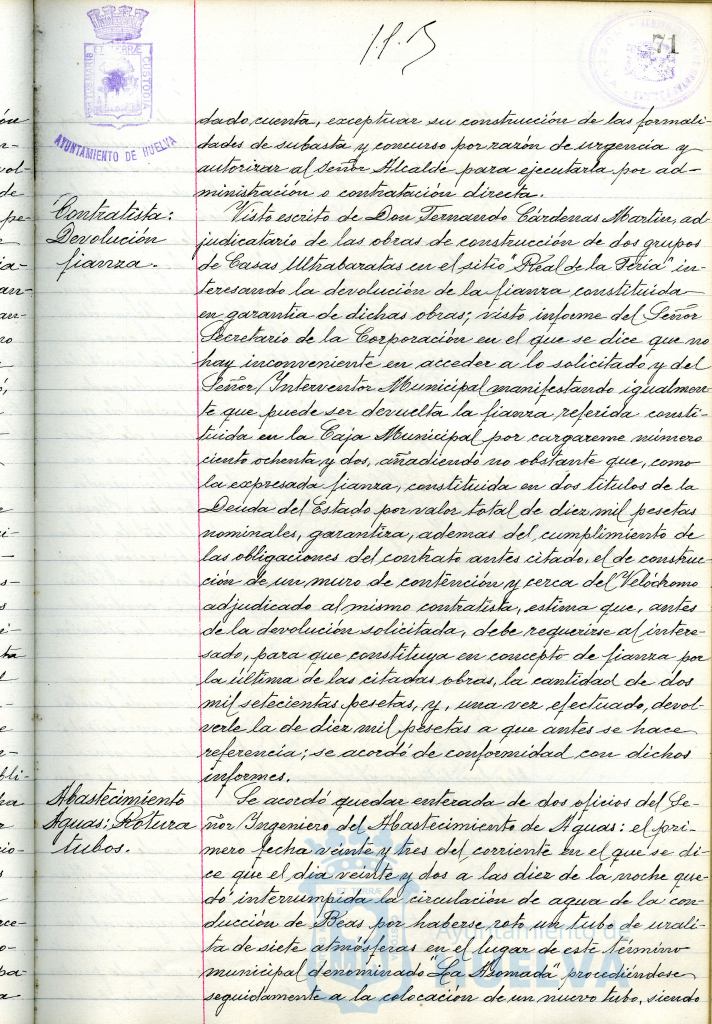 71
AYUNTAMIENTO DE HUELVA
dado cuenta, exceptuar su construcción de las formali-
dades de subasta y concurso por razón de urgencia y
autorizar al Señor Alcalde para ejecutarla por ad-
ministración o contratación directa.
Contratista:
Devolución
fianza.
Visto escrito de Don Fernando Cárdenas Martin, ad-
judicatario de las obras de construcción de dos grupos
de Casas Ultrabaratas en el sitio "Real de la Feria" in-
teresando la devolución de la fianza constituida
en garantia de dichas obras; visto informe del Señor
Secretario de la Corporación en el que se dice que no
hay inconveniente en acceder a lo solicitado y del
Señor Interventor Municipal manifestando igualmen-
te que puede ser devuelta la fianza referida consti-
tuida en la Caja Municipal por cargareme número
ciento ochenta y dos, añadiendo no obstante que, como
la expresada fianza, constituida en dos titulos de la
Deuda del Estado por valor total de diez mil pesetas
nominales, garantiza, ademas del cumplimiento de
las obligaciones del contrato antes citado, el de construc-
ción de un muro de contención y cerca del Velódromo
adjudicado al mismo contratista, estima que, antes
de la devolución solicitada, debe requerirse al intere-
sado, para que constituya en concepto de fianza por
la última de las citadas obras, la cantidad de dos
mil setecientas pesetas, y, una vez efectuado, devol-
verle la de diez mil pesetas a que antes se hace
referencia; se acordó de conformidad con dichos
informes.
Abastecimiento
Aguas: Rotura
tubos.
Se acordó quedar enterada de dos oficios del Se-
ñor Ingeniero del Abastecimiento de Aguas: el pri-
mero fecha veinte y tres del corriente en el que se di-
ce que el dia veinte y dos a las diez de la noche que-
dó interrumpida la circulación de agua de la con-
ducción de Beas por haberse roto un tubo de urali-
ta de siete atmósferas en el lugar de este término
municipal denominado "La Asomada" procediéndose
seguidamente a la colocación de un nuevo tubo, siendo
Ayuntamiento de
HUELVA